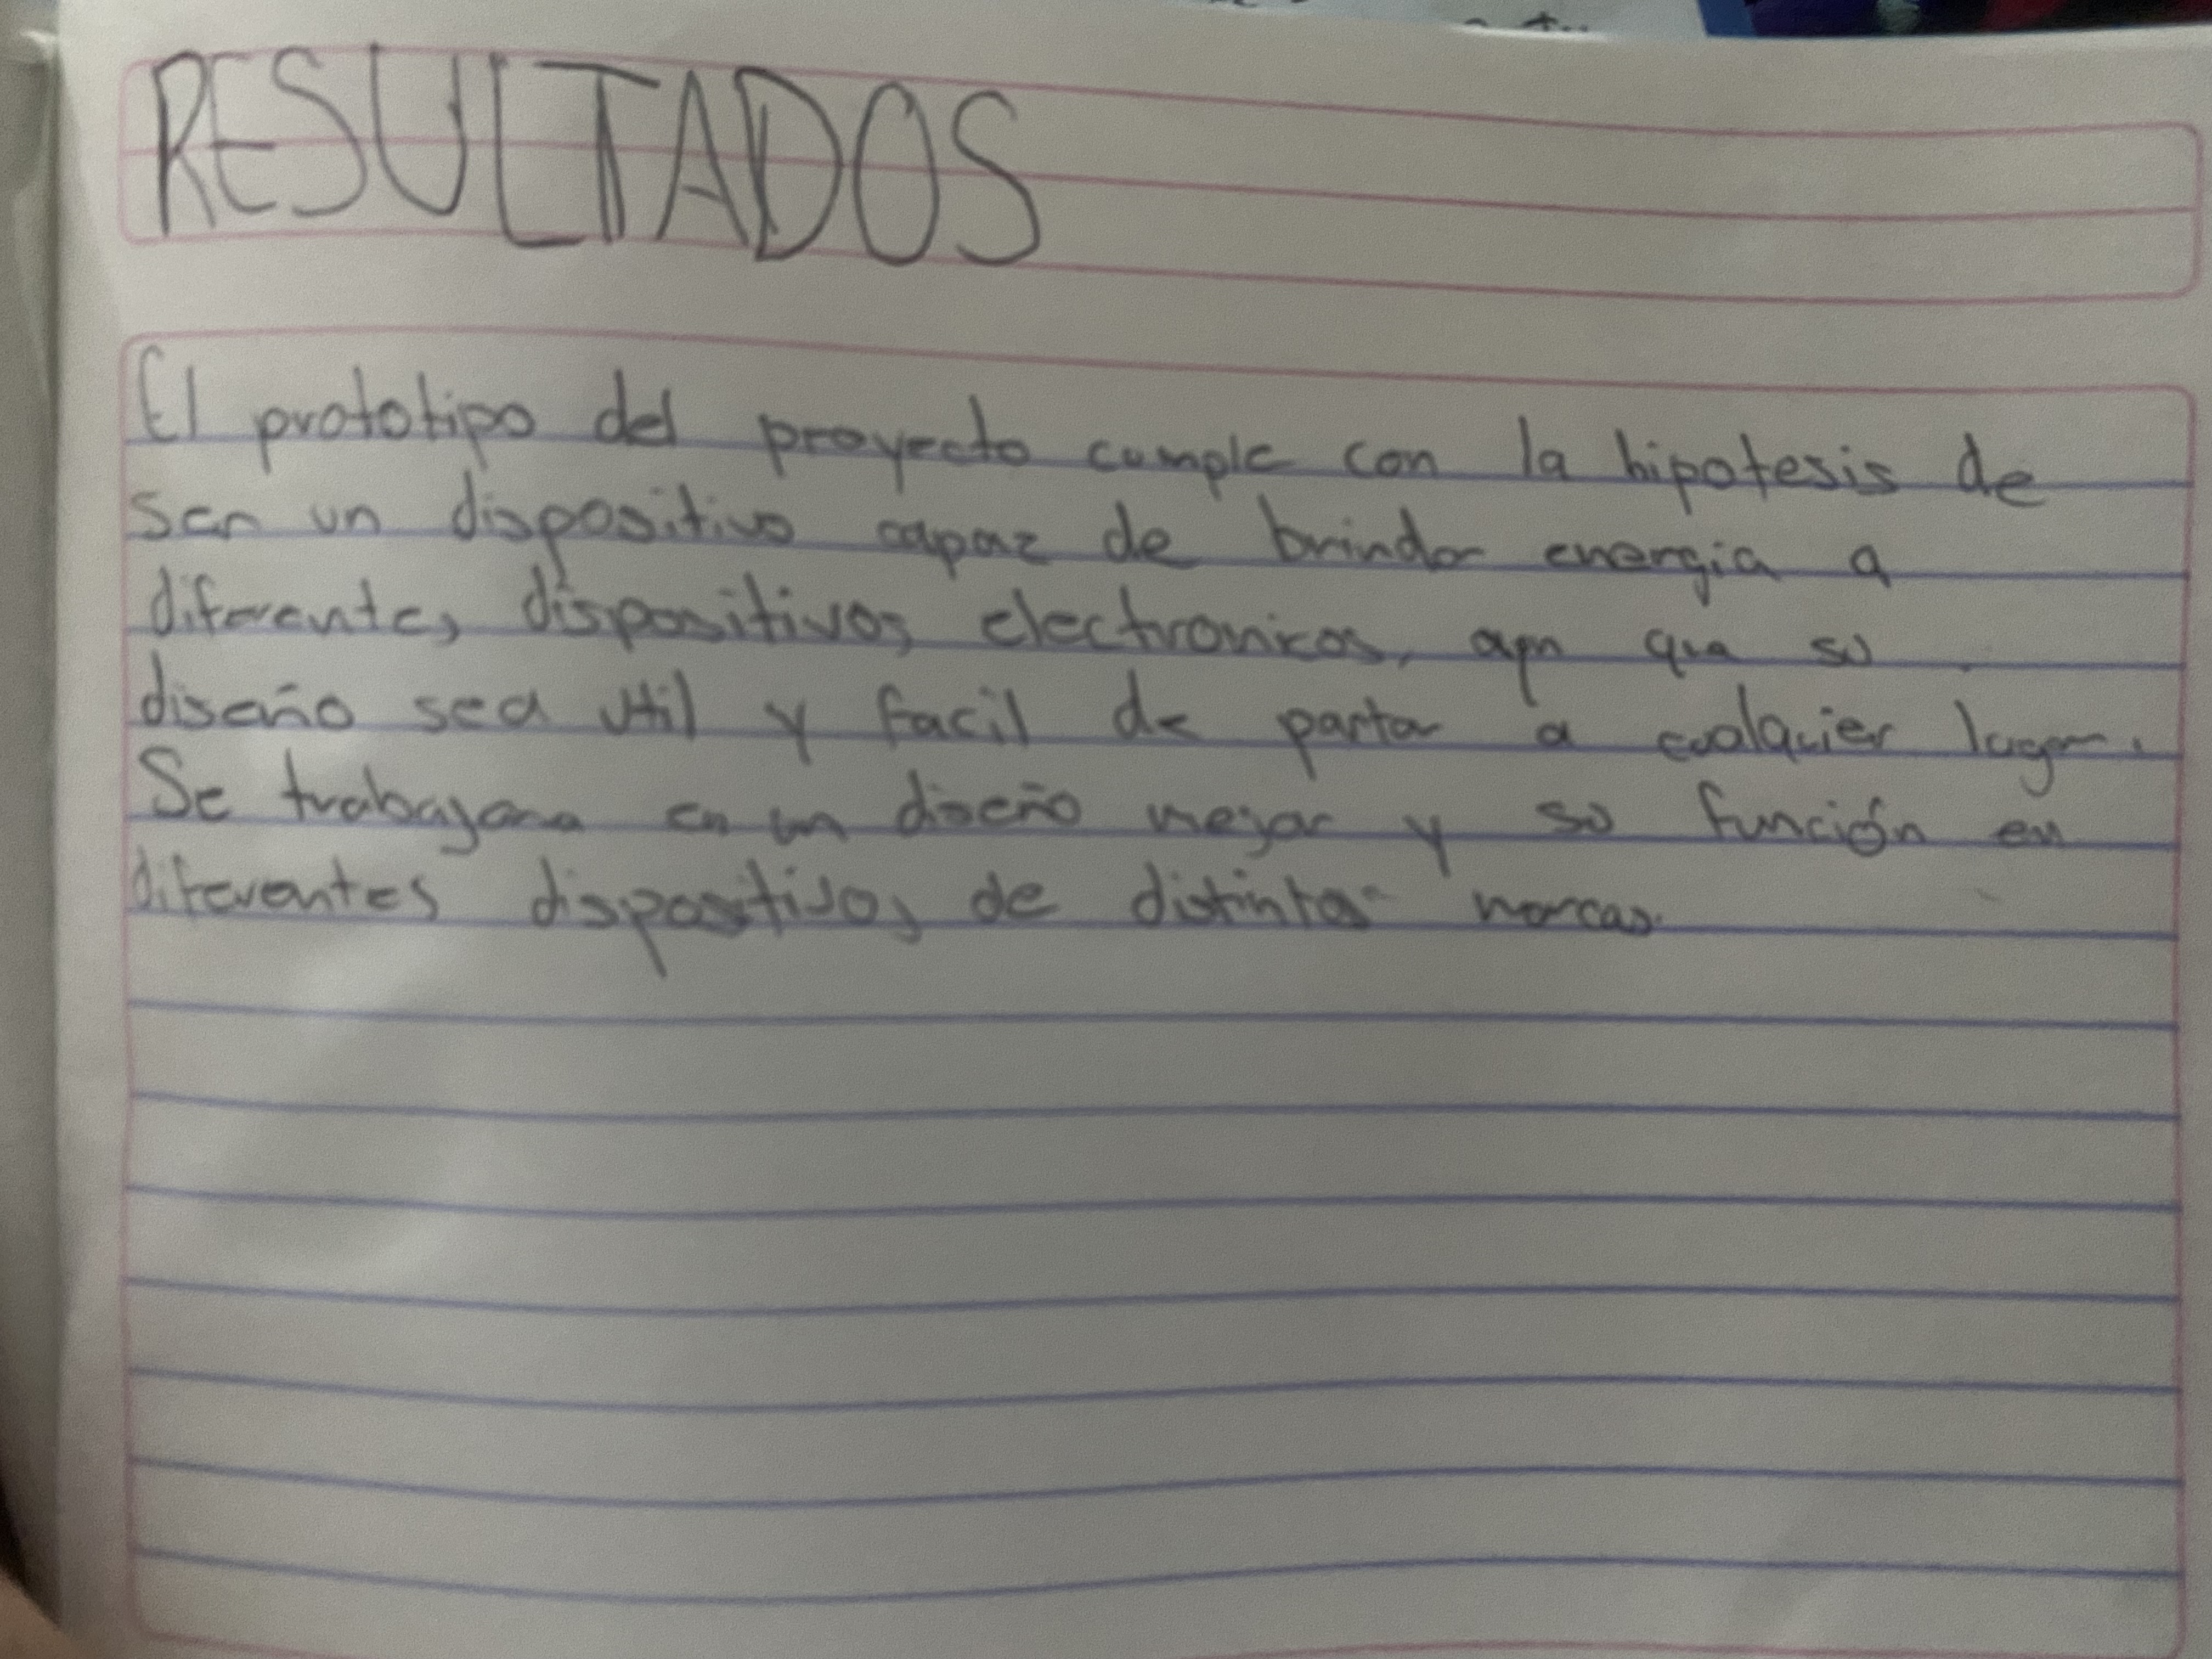 RESULTADOS
El prototipo del proyecto cumple con la hipotesis de
ser un dispositivo capaz de brindar energia a
diferentes dispositivos electronicos, que su
diseño sea util y facil de portar a cualquier lugar.
Se trabajara en un diseño mejor y su función en
diferentes dispositivos de distintas marcas.